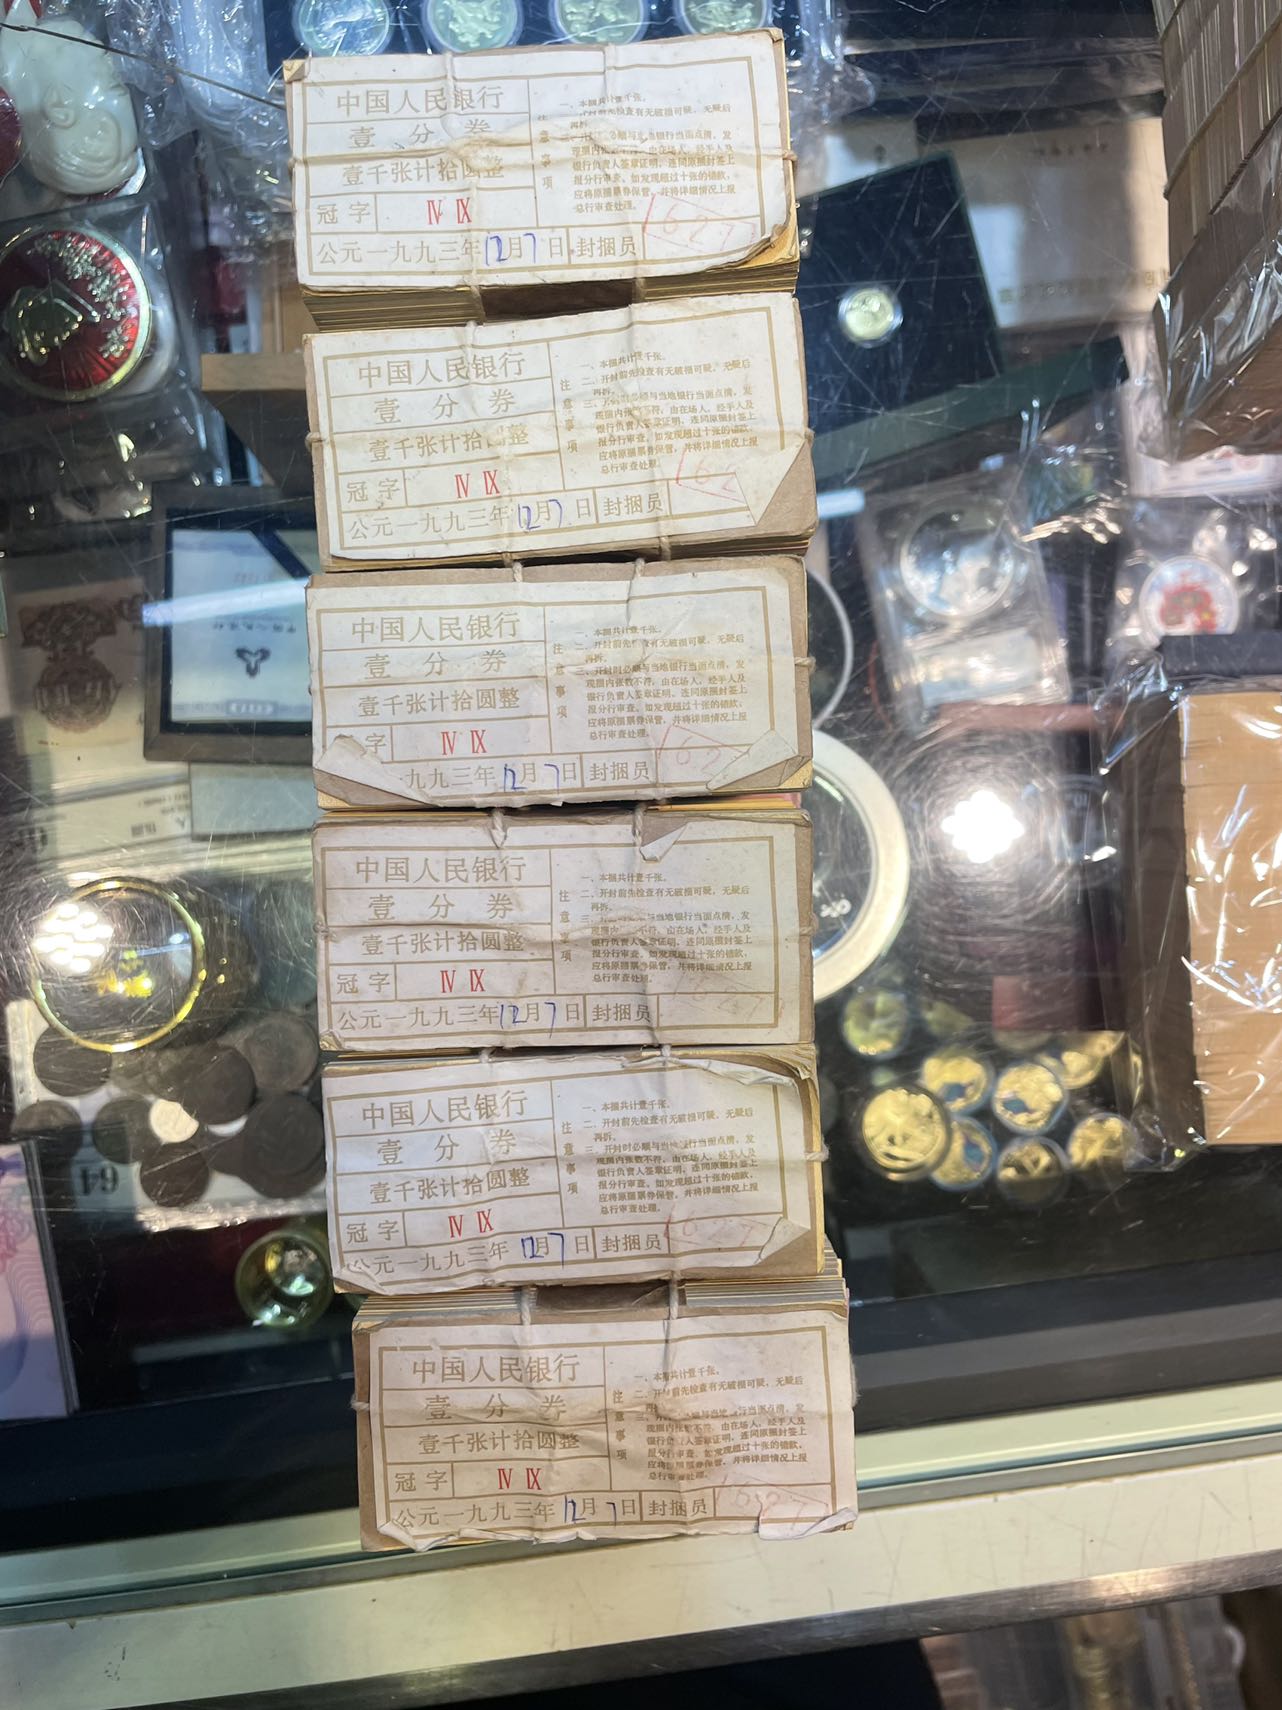 中国人民银行
壹分券
壹千张计拾圆整
冠字 Ⅳ Ⅸ
公元一九九三年12月7日 封捆员 1627
注意事项
一、本捆共计壹千张。
二、开封前先检查有无破损可疑，无疑后
再拆。
必顺与当地银行当面点清，发
现捆内张数不符，由在场人、经手人及
银行负责人签章证明，连同原捆封签上
报分行审查。如发现超过十张的错款，
应将原捆票券保管，并将详细情况上报
总行审查处理。
中国人民银行
壹分券
壹千张计拾圆整
冠字 Ⅳ Ⅸ
公元一九九三年12月7日 封捆员 162
注意事项
一、本捆共计壹千张。
二、开封前先检查有无破损可疑，无疑后
再拆。
三、开封时必顺与当地银行当面点清，发
现捆内张数不符，由在场人、经手人及
银行负责人签章证明，连同原捆封签上
报分行审查。如发现超过十张的错款，
应将原捆票券保管，并将详细情况上报
总行审查处理。
中国人民银行
壹分券
壹千张计拾圆整
字 Ⅳ Ⅸ
九九三年12月7日 封捆员 162
注意事项
一、本捆共计壹千张。
二、开封前先检查有无破损可疑，无疑后
再拆。
三、开封时必顺与当地银行当面点清，发
现捆内张数不符，由在场人、经手人及
银行负责人签章证明，连同原捆封签上
报分行审查。如发现超过十张的错款，
应将原捆票券保管，并将详细情况上报
总行审查处理。
中国人民银行
壹分券
壹千张计拾圆整
冠字 Ⅳ Ⅸ
公元一九九三年12月7日 封捆员 1627
注意事项
一、本捆共计壹千张。
二、开封前先检查有无破损可疑，无疑后
再拆。
三、与当地银行当面点清，发
现捆内不符，由在场人、经手人及
银行负责人签章证明，连同原捆封签上
报分行审查。如发现超过十张的错款，
应将原捆票券保管，并将详细情况上报
总行审查处理。
中国人民银行
壹分券
壹千张计拾圆整
冠字 Ⅳ Ⅸ
公元一九九三年12月7日 封捆员 1627
注意事项
一、本捆共计壹千张。
二、开封前先检查有无破损可疑，无疑后
再拆。
三、开封时必顺与当地银行当面点清，发
现捆内张数不符，由在场人、经手人及
银行负责人签章证明，连同原捆封签上
报分行审查。如发现超过十张的错款，
应将原捆票券保管，并将详细情况上报
总行审查处理。
中国人民银行
壹分券
壹千张计拾圆整
冠字 Ⅳ Ⅸ
公元一九九三年12月7日 封捆员 1627
注意事项
一、本捆共计壹千张。
二、开封前先检查有无破损可疑，无疑后
再拆。
顺与当地银行当面点清，发
现捆内张数不符，由在场人、经手人及
银行负责人签章证明，连同原捆封签上
报分行审查。如发现超过十张的错款，
应将原捆票券保管，并将详细情况上报
总行审查处理。
64